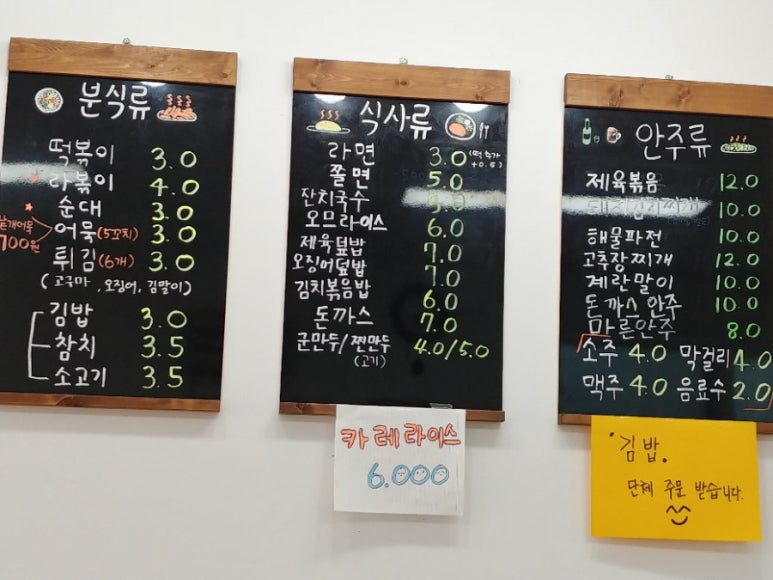 분식류
떡볶이 3.0
라볶이 4.0
순대 3.0
어묵(5꼬치) 3.0
낱개어묵
700원
튀김(6개) 3.0
(고구마, 오징어, 김말이)
김밥 3.0
참치 3.5
소고기 3.5
식사류
라면 3.0 (떡 추가 +0.5)
쫄면 5.0
잔치국수 5.0
오므라이스 6.0
제육덮밥 7.0
오징어덮밥 7.0
김치볶음밥 6.0
돈까스 7.0
군만두/찐만두 4.0/5.0
(고기)
카레라이스
6.000
안주류
제육볶음 12.0
돼지김치찌개 10.0
해물파전 10.0
고추장찌개 12.0
계란말이 10.0
돈까스 안주 10.0
마른안주 8.0
소주 4.0 막걸리 4.0
맥주 4.0 음료수 2.0
김밥.
단체 주문 받습니다.